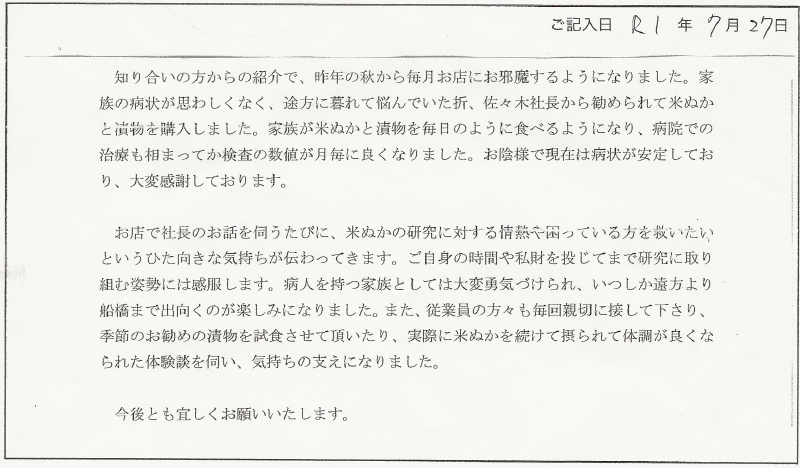 ご記入日 R1年7月27日
知り合いの方からの紹介で、昨年の秋から毎月お店にお邪魔するようになりました。家
族の病状が思わしくなく、途方に暮れて悩んでいた折、佐々木社長から勧められて米ぬか
と漬物を購入しました。家族が米ぬかと漬物を毎日のように食べるようになり、病院での
治療も相まってか検査の数値が月毎に良くなりました。お陰様で現在は病状が安定してお
り、大変感謝しております。
お店で社長のお話を伺うたびに、米ぬかの研究に対する情熱や困っている方を救いたい
というひた向きな気持ちが伝わってきます。ご自身の時間や私財を投じてまで研究に取り
組む姿勢には感服します。病人を持つ家族としては大変勇気づけられ、いつしか遠方より
船橋まで出向くのが楽しみになりました。また、従業員の方々も毎回親切に接して下さり、
季節のお勧めの漬物を試食させて頂いたり、実際に米ぬかを続けて摂られて体調が良くな
られた体験談を伺い、気持ちの支えになりました。
今後とも宜しくお願いいたします。